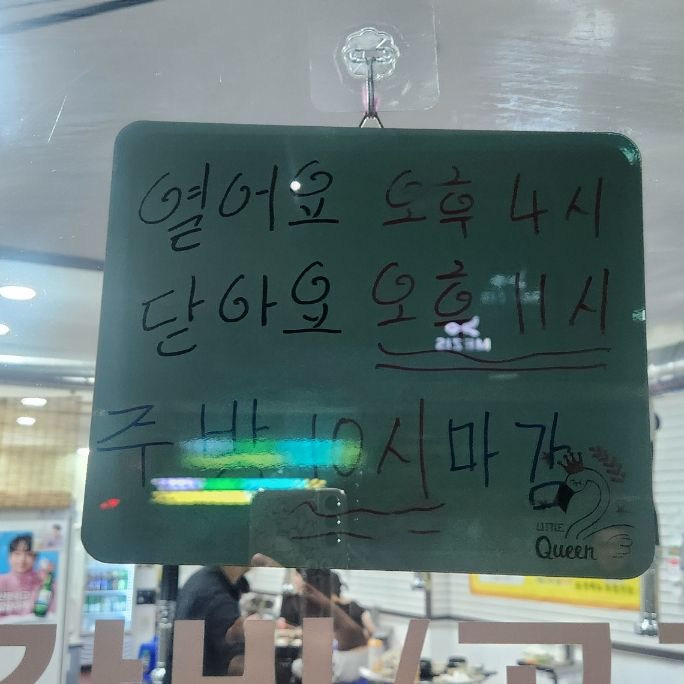 열어요 오후 4시
닫아요 오후 11시
주방 10시 마감
LITTLE
Queen